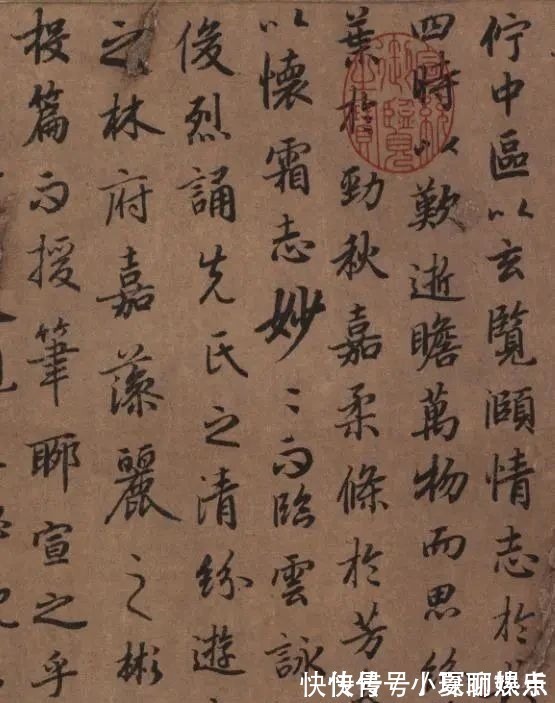 佇中區以玄覽頤情志於
四時以歎逝瞻萬物而思
葉於勁秋嘉柔條於芳
以懷霜志妙〻而臨雲詠
俊烈誦先氏之清紛遊
之林府嘉藻麗之彬
投篇而援筆聊宣之乎
快传号